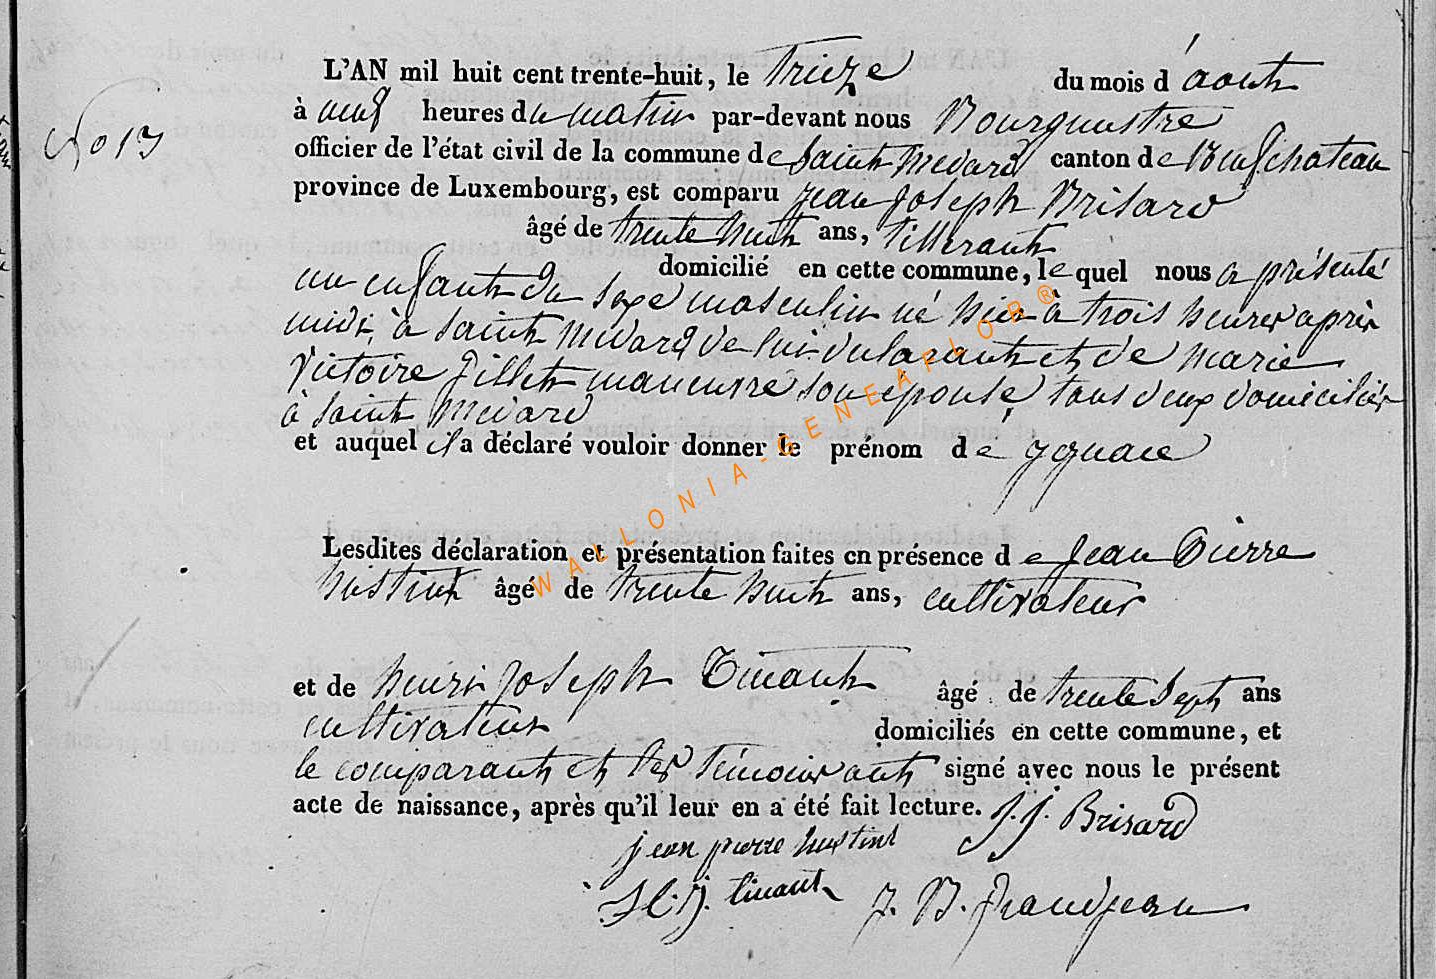 L'AN mil huit cent trente-huit, le Treize du mois d'aout
à neuf heures du matin par-devant nous Bourguestre
No 13
officier de l'état civil de la commune de Saint Medard canton de Neufchateau
province de Luxembourg, est comparu Jean Joseph Brisard
âgé de trente huit ans, Tisserant
domicilié en cette commune, lequel nous a présenté
un enfant du sexe masculin né hier à trois heures après
midi, à Saint Medard de lui declarant et de Marie
Victoire Gillet maneuvre son épouse, tous deux domiciliés
à Saint Medard
et auquel il a déclaré vouloir donner le prénom de ygnace
Lesdites déclaration et présentation faites en présence de Jean Pierre
hustinx âgé de trente huit ans, cultivateur
et de henri Joseph Tinant âgé de trente Sept ans
cultivateur domiciliés en cette commune, et
le comparant et les témoins ont signé avec nous le présent
acte de naissance, après qu'il leur en a été fait lecture. J. J. Brisard
jean pierre hustinx
H. J. tinant J. B. Grandjean
WALLONIA-GENEAFLOR®